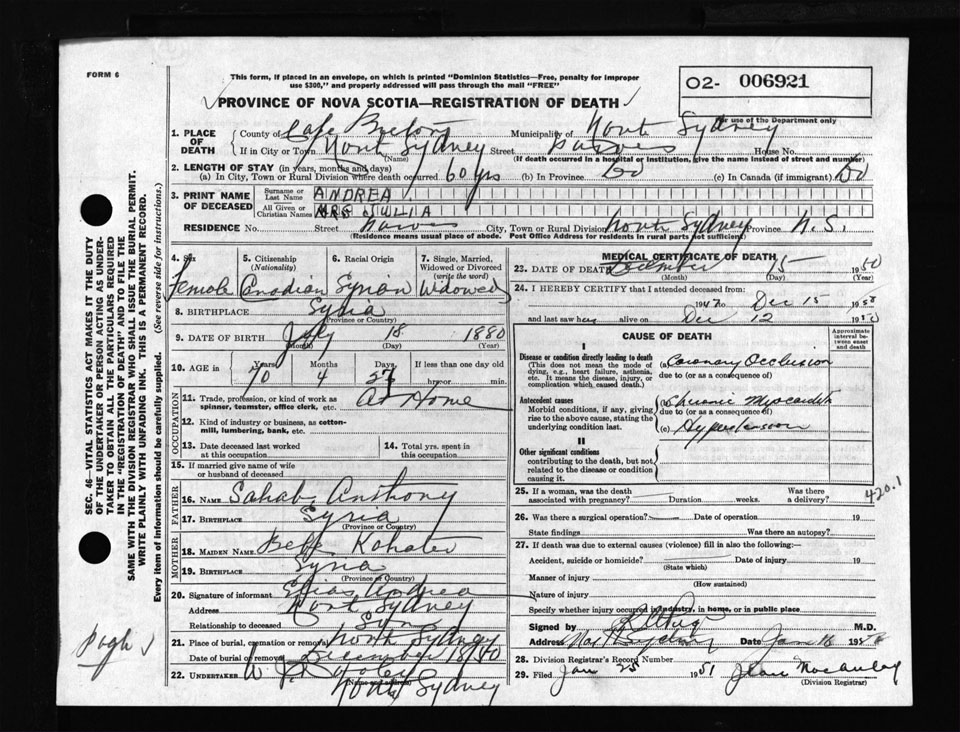 FORM 6
This form, if placed in an envelope, on which is printed "Dominion Statistics—Free, penalty for improper
use $300," and properly addressed will pass through the mail "FREE"
O2- 006921
For use of the Department only
PROVINCE OF NOVA SCOTIA—REGISTRATION OF DEATH
1. PLACE OF DEATH { County of Cape Breton Municipality of North Sydney
If in City or Town North Sydney Street House No.
(Name) (If death occurred in a hospital or institution, give the name instead of street and number)
2. LENGTH OF STAY (in years, months, and days)
(a) In City, Town or Rural Division where death occurred 60 yrs (b) In Province 60 (c) In Canada (if immigrant) 60
3. PRINT NAME OF DECEASED
Surname or Last Name ANDREA
All Given or Christian Names MRS JULIA
RESIDENCE No. Street City, Town or Rural Division North Sydney Province N.S.
(Residence means usual place of abode. Post Office Address for residents in rural parts not sufficient)
SEC. 46—VITAL STATISTICS ACT MAKES IT THE DUTY
OF THE UNDERTAKER OR PERSON ACTING AS UNDER-
TAKER TO OBTAIN ALL THE PARTICULARS REQUIRED
IN THE "REGISTRATION OF DEATH" AND TO FILE THE
SAME WITH THE DIVISION REGISTRAR WHO SHALL ISSUE THE BURIAL PERMIT.
WRITE PLAINLY WITH UNFADING INK. THIS IS A PERMANENT RECORD.
Every item of information should be carefully supplied. (See reverse side for instructions.)
4. Sex 5. Citizenship (Nationality) 6. Racial Origin 7. Single, Married, Widowed or Divorced (write the word)
Female Canadian Syrian Widowed
8. BIRTHPLACE Syria
(Province or Country)
9. DATE OF BIRTH July 18 1880
(Month) (Day) (Year)
10. AGE in { Years Months Days If less than one day old
70 4 27 hrs. or min.
OCCUPATION
11. Trade, profession, or kind of work as spinner, teamster, office clerk, etc. At Home
12. Kind of industry or business, as cotton-mill, lumbering, bank, etc.
13. Date deceased last worked at this occupation 14. Total yrs. spent in this occupation
15. If married give name of wife or husband of deceased
FATHER
16. NAME Sahab Anthony
17. BIRTHPLACE Syria
(Province or Country)
MOTHER
18. MAIDEN NAME
19. BIRTHPLACE Syria
(Province or Country)
20. Signature of informant Elias Andrea
Address North Sydney
Relationship to deceased Son
21. Place of burial, cremation or removal North Sydney
Date of burial or removal December 18/50
22. UNDERTAKER
(Name and address) North Sydney
MEDICAL CERTIFICATE OF DEATH
23. DATE OF DEATH December 15 1950
(Month) (Day) (Year)
24. I HEREBY CERTIFY that I attended deceased from:
1947 to Dec 15 1950
and last saw her alive on Dec 12 1950
CAUSE OF DEATH
Approximate interval between onset and death
I
Disease or condition directly leading to death
(This does not mean the mode of dying, e.g., heart failure, asthenia, etc. It means the disease, injury, or complication which caused death.)
(a) Coronary Occlusion
due to (or as a consequence of)
Antecedent causes
Morbid conditions, if any, giving rise to the above cause, stating the underlying condition last.
(b) Chronic Myocarditis
due to (or as a consequence of)
(c) Hypertension
II
Other significant conditions
contributing to the death, but not related to the disease or condition causing it.
25. If a woman, was the death associated with pregnancy? Duration weeks. Was there a delivery?
420.1
26. Was there a surgical operation? Date of operation 19
State findings Was there an autopsy?
27. If death was due to external causes (violence) fill in also the following:—
Accident, suicide or homicide? Date of injury 19
(State which)
Manner of injury
(How sustained)
Nature of injury
Specify whether injury occurred in industry, in home, or in public place
Signed by M.D.
Address Date Jan 16
28. Division Registrar's Record Number
29. Filed Jan 25 1951 Jean MacAulay
(Division Registrar)